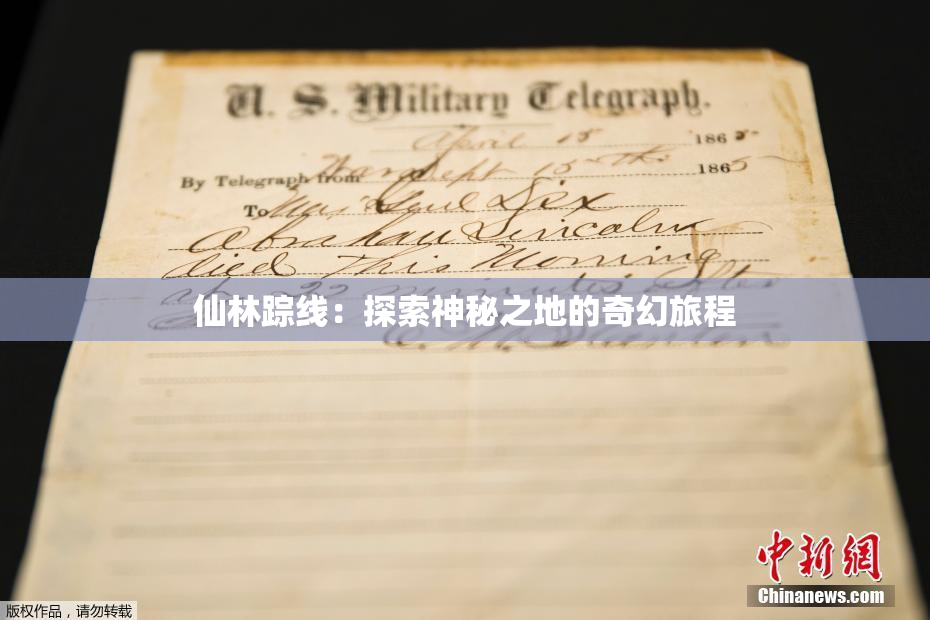 U. S. Military Telegraph.
April 15 1865
By Telegraph from War Dept 15th 1865
To Maj Genl Dix
Abraham Lincoln
died This Morning
at 22 minutes after
仙林踪线：探索神秘之地的奇幻旅程
E. M. Stanton
中新网
Chinanews.com
版权作品，请勿转载